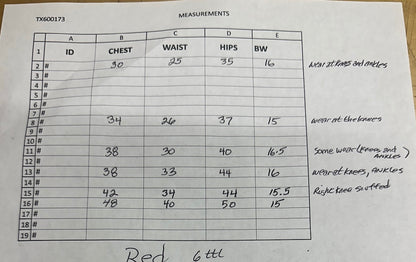 TX600173 MEASUREMENTS
A B C D E
1 ID CHEST WAIST HIPS BW
2 # 30 25 35 16 wear at knees and ankles
3 #
4 #
5 #
6 #
7 #
8 # 34 26 37 15 wear at the knees
9 #
10 #
11 # 38 30 40 16.5 Some wear (knees and ankles)
12 #
13 # 38 33 44 16 wear at knees, ankles
14 #
15 # 42 34 44 15.5 Right knee
16 # 48 40 50 15
17 #
18 #
19 #
Red 6 ttl